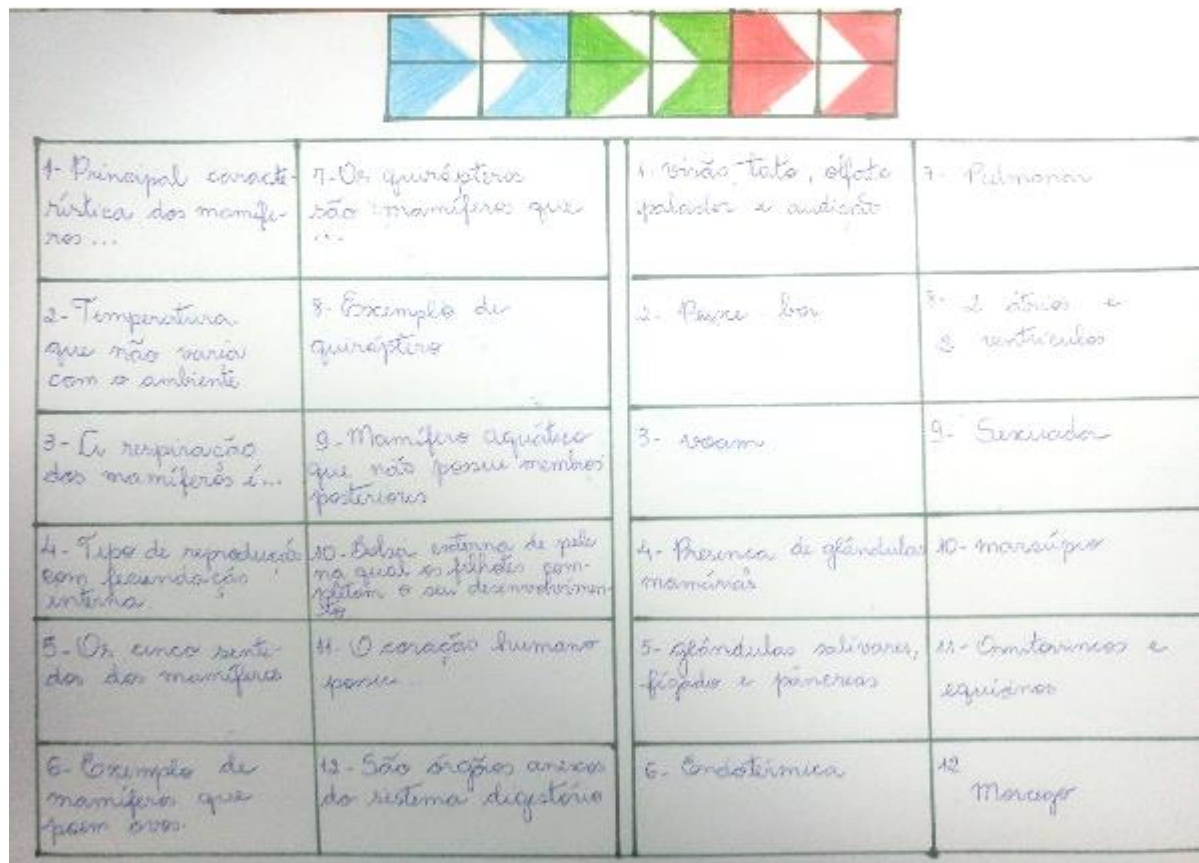 1- Principal caracte-
rística dos mamífe-
ros...
7- Os quirópteros
são mamíferos que
...
2- Temperatura
que não varia
com o ambiente
8- Exemplo de
quiróptero
3- A respiração
dos mamíferos é...
9- Mamífero aquático
que não possue membros
posteriores
4- Tipo de reprodução
com fecundação
interna
10- Bolsa externa de pele
na qual os filhotes com-
pletam o seu desenvolvimen-
to
5- Os cinco senti-
dos dos mamíferos
11- O coração humano
possue...
6- Exemplo de
mamíferos que
poem ovos.
12- São órgãos anexos
do sistema digestório
1- visão, tato, olfato
paladar e audição
7- Pulmonar
2- Peixe-boi
8- 2 átrios e
2 ventrículos
3- voam
9- Sexuada
4- Presença de glândulas
mamárias
10- marsúpio
5- glândulas salivares,
fígado e pâncreas
11- Ornitorrincos e
equidnos
6- Endotérmica
12
Morcego